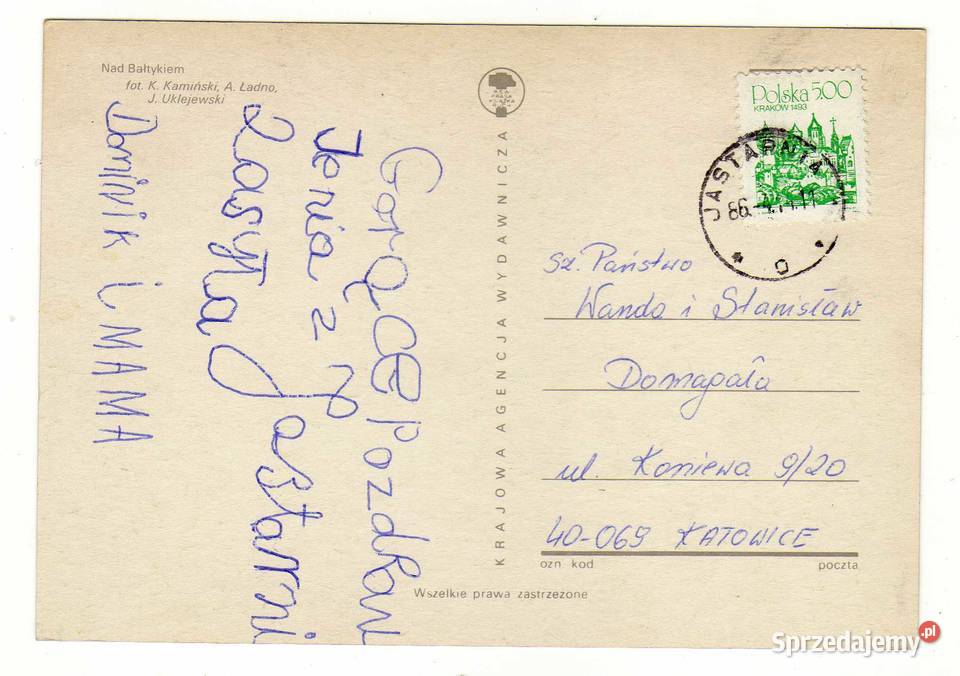 Nad Bałtykiem
fot. K. Kamiński, A. Ładno,
J. Uklejewski
GorącE pozdRow
Jenia z
zasyła Jastarni
Dominik i MAMA
KRAJOWA AGENCJA WYDAWNICZA
Polska 5.00
KRAKÓW 1493
JASTARNIA
86
Sz. Państwo
Wanda i Stanisław
Domagała
ul. Koniewa 9/20
40-069 KATOWICE
ozn kod poczta
Wszelkie prawa zastrzeżone
Sprzedajemy.pl